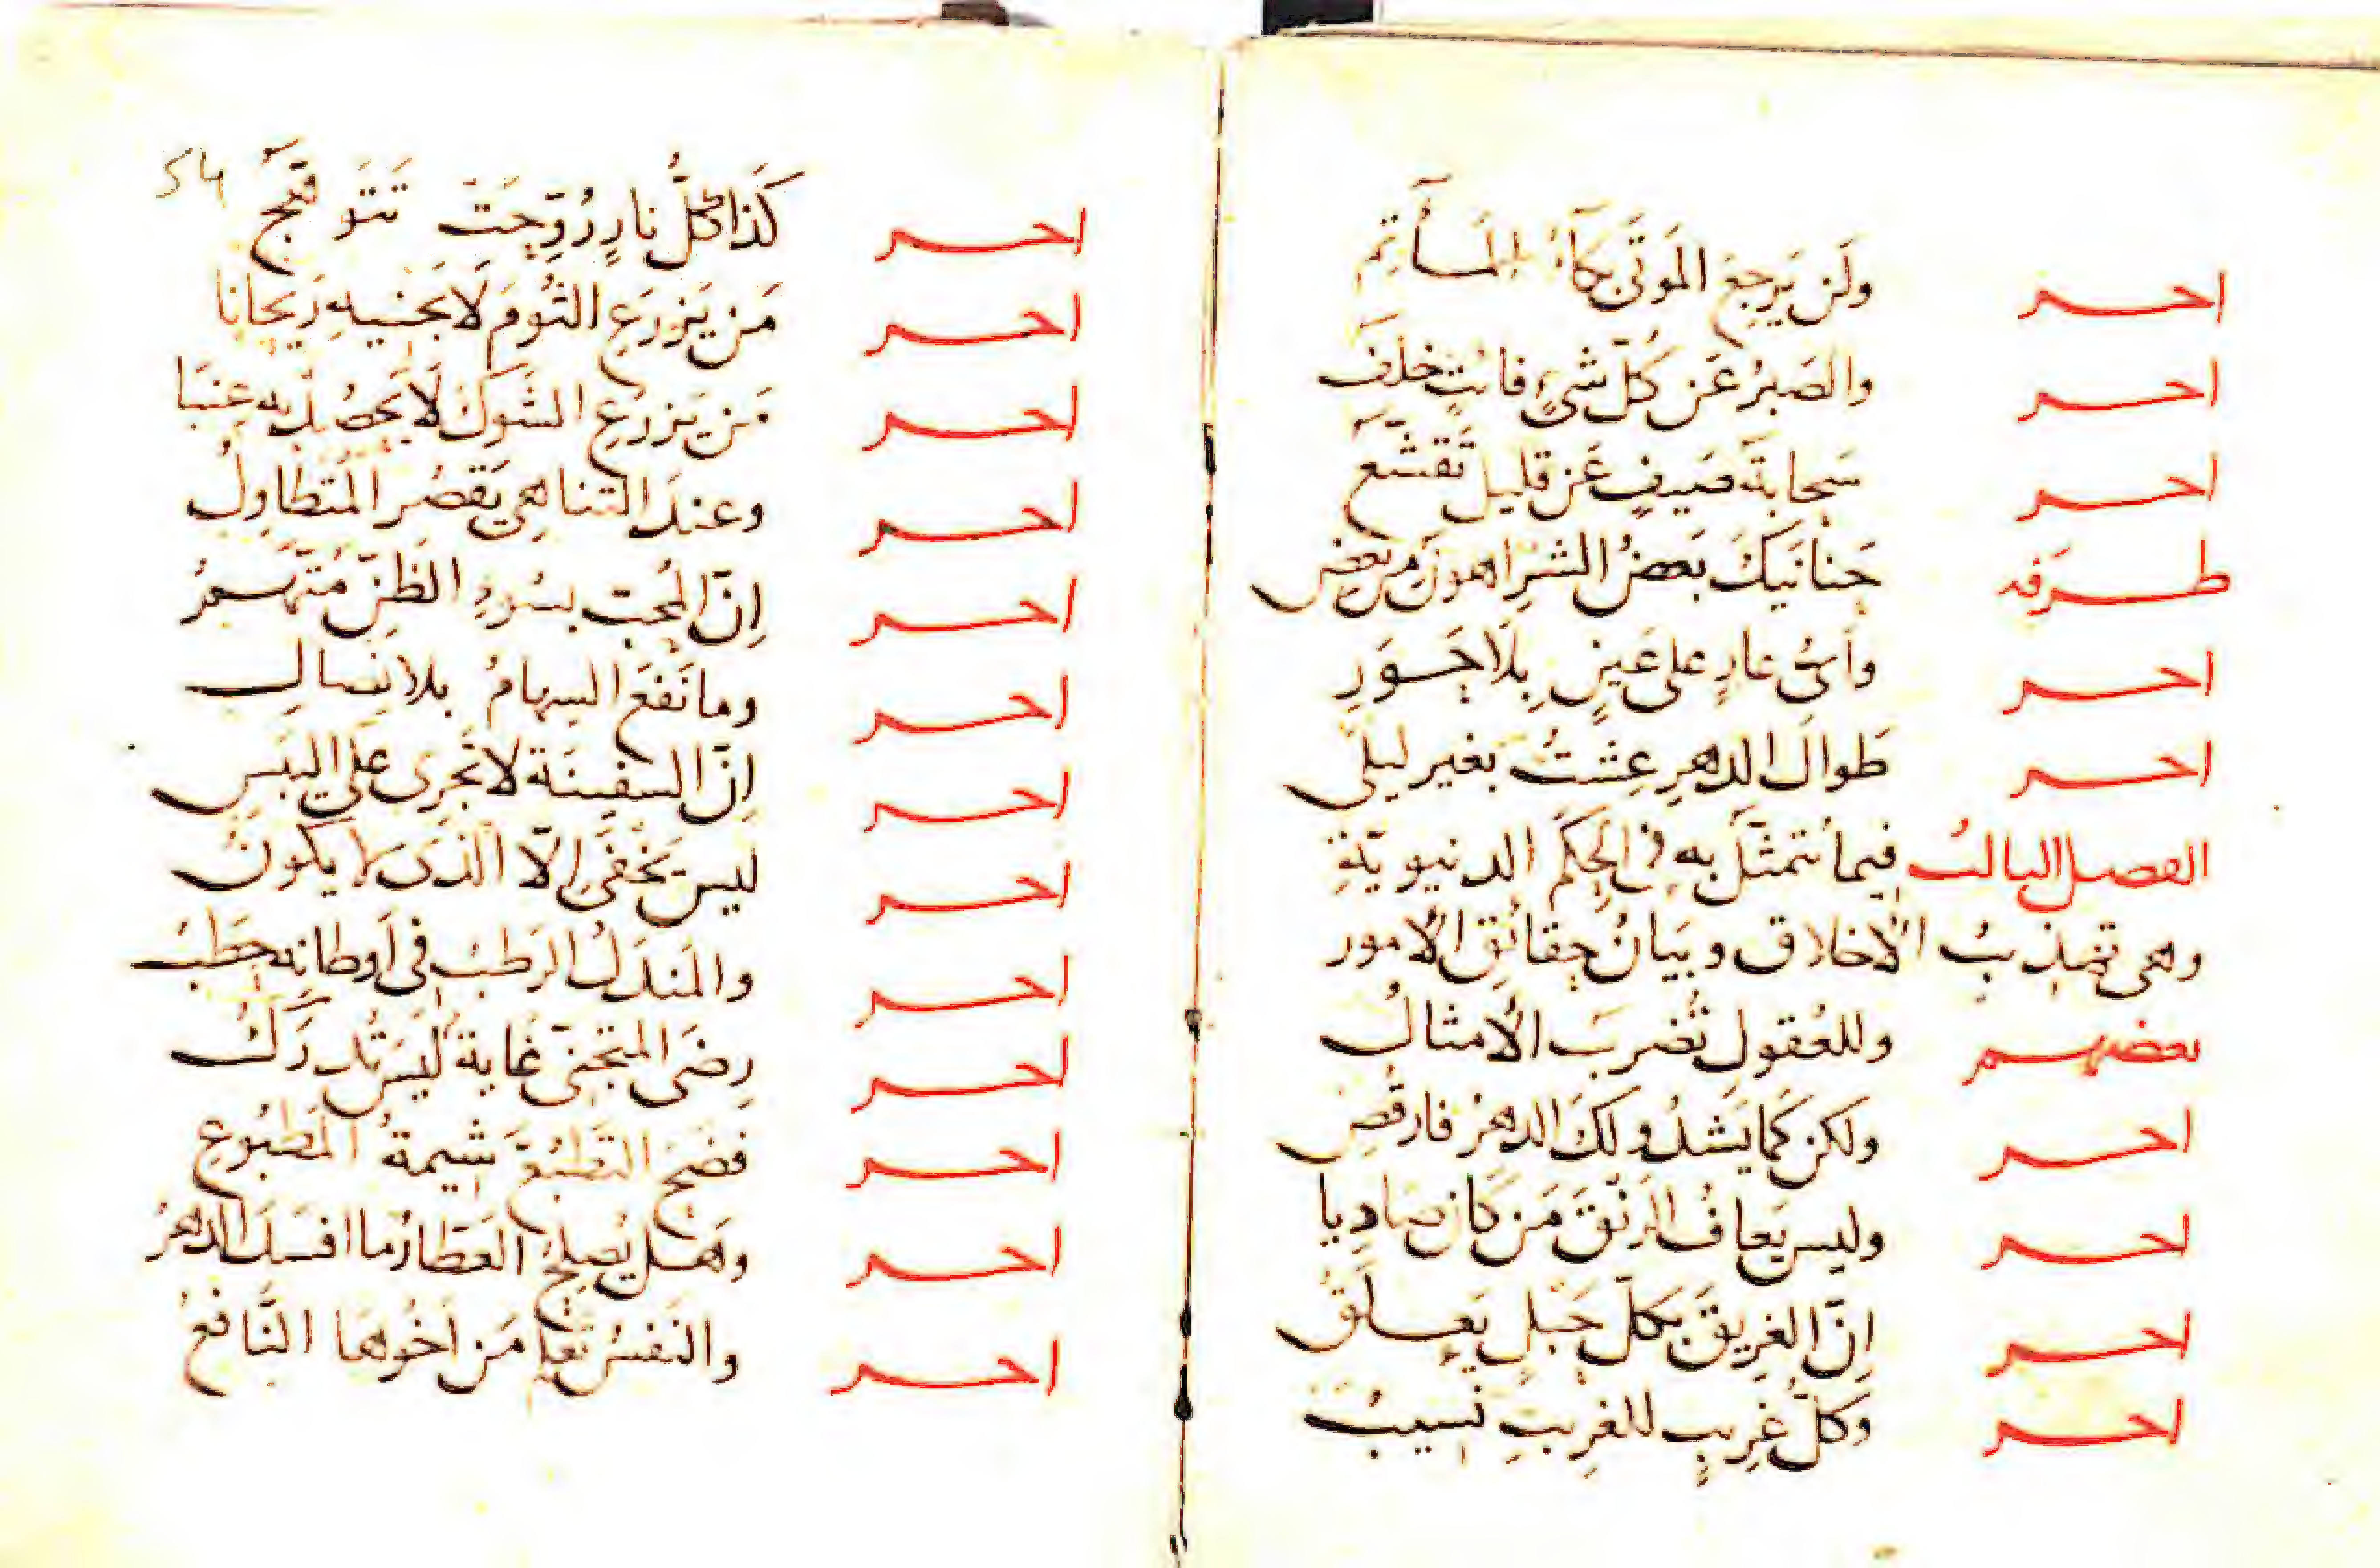 احـر ولَن يَرجِعَ المَوتَى بكآءُ المَآتِم
احـر والصَبرُ عَن كُلّ شىءٍ فائتٍ خلَفُ
احـر سَحابَة صَيفٍ عَن قليل تَقشّعُ
طَرَفه حَنانَيكَ بَعضُ الشرِ اهونُ مِن بعضِ
احـر وأىُّ عارٍ على عَينٍ بِلا حَوَرِ
احـر طوالَ الدهرِ عِشتُ بغير ليلَى
الفصل الثالث فيما يُتمثَّل به فى الحِكَم الدنيويّةِ
وهى تهذيبُ الاخلاق وبَيانُ حقائق الامور
بعضهم وللعُقولِ تُضرَبُ الأمثالُ
احـر ولكن كَما يَشدُو لكَ الدهرُ فارقُصِ
احـر وليس يَعافُ الرَنقَ مَن كان صادِيا
احـر اِنّ الغَرِيقَ بكلّ حَبلٍ يَعلَقُ
احـر وكلُّ غرِيبٍ للغرِيبِ نَسيبُ
54
احـر كَذا كلُّ نارٍ رُوّحِتَ تَتَوهّجُ
احـر مَن يَزرَعِ الثُومَ لا يجنيهِ رَيحانا
احـر مَن يَزرَعِ الشَوكَ لا يَحصُل به عِنَبا
احـر وعندَ التناهِى يَقصُر المُتَطاوِلُ
احـر اِنّ المُحبّ بسُوءِ الظَنّ مُتّهَمُ
احـر وما نَفعَ السِهامُ بلا نِصالِ
احـر اِنّ السفِينَة لا تَجرِى على اليَبَسِ
احـر ليس يَخفَى الّا الذى لا يكونُ
احـر والمَندَلُ الرَطبُ فى اَوطانِه حَطَبُ
احـر رِضَى المتجنّى غايةٌ ليسَ تُدرَكُ
احـر فضَحَ التَطبُّعَ شيمةُ المَطبُوعِ
احـر وهَل يُصلِحُ العَطارُ ما افسَدَ الدهرُ
احـر والنَفسُ تَعلم مَن اَخُوها النَّافعُ